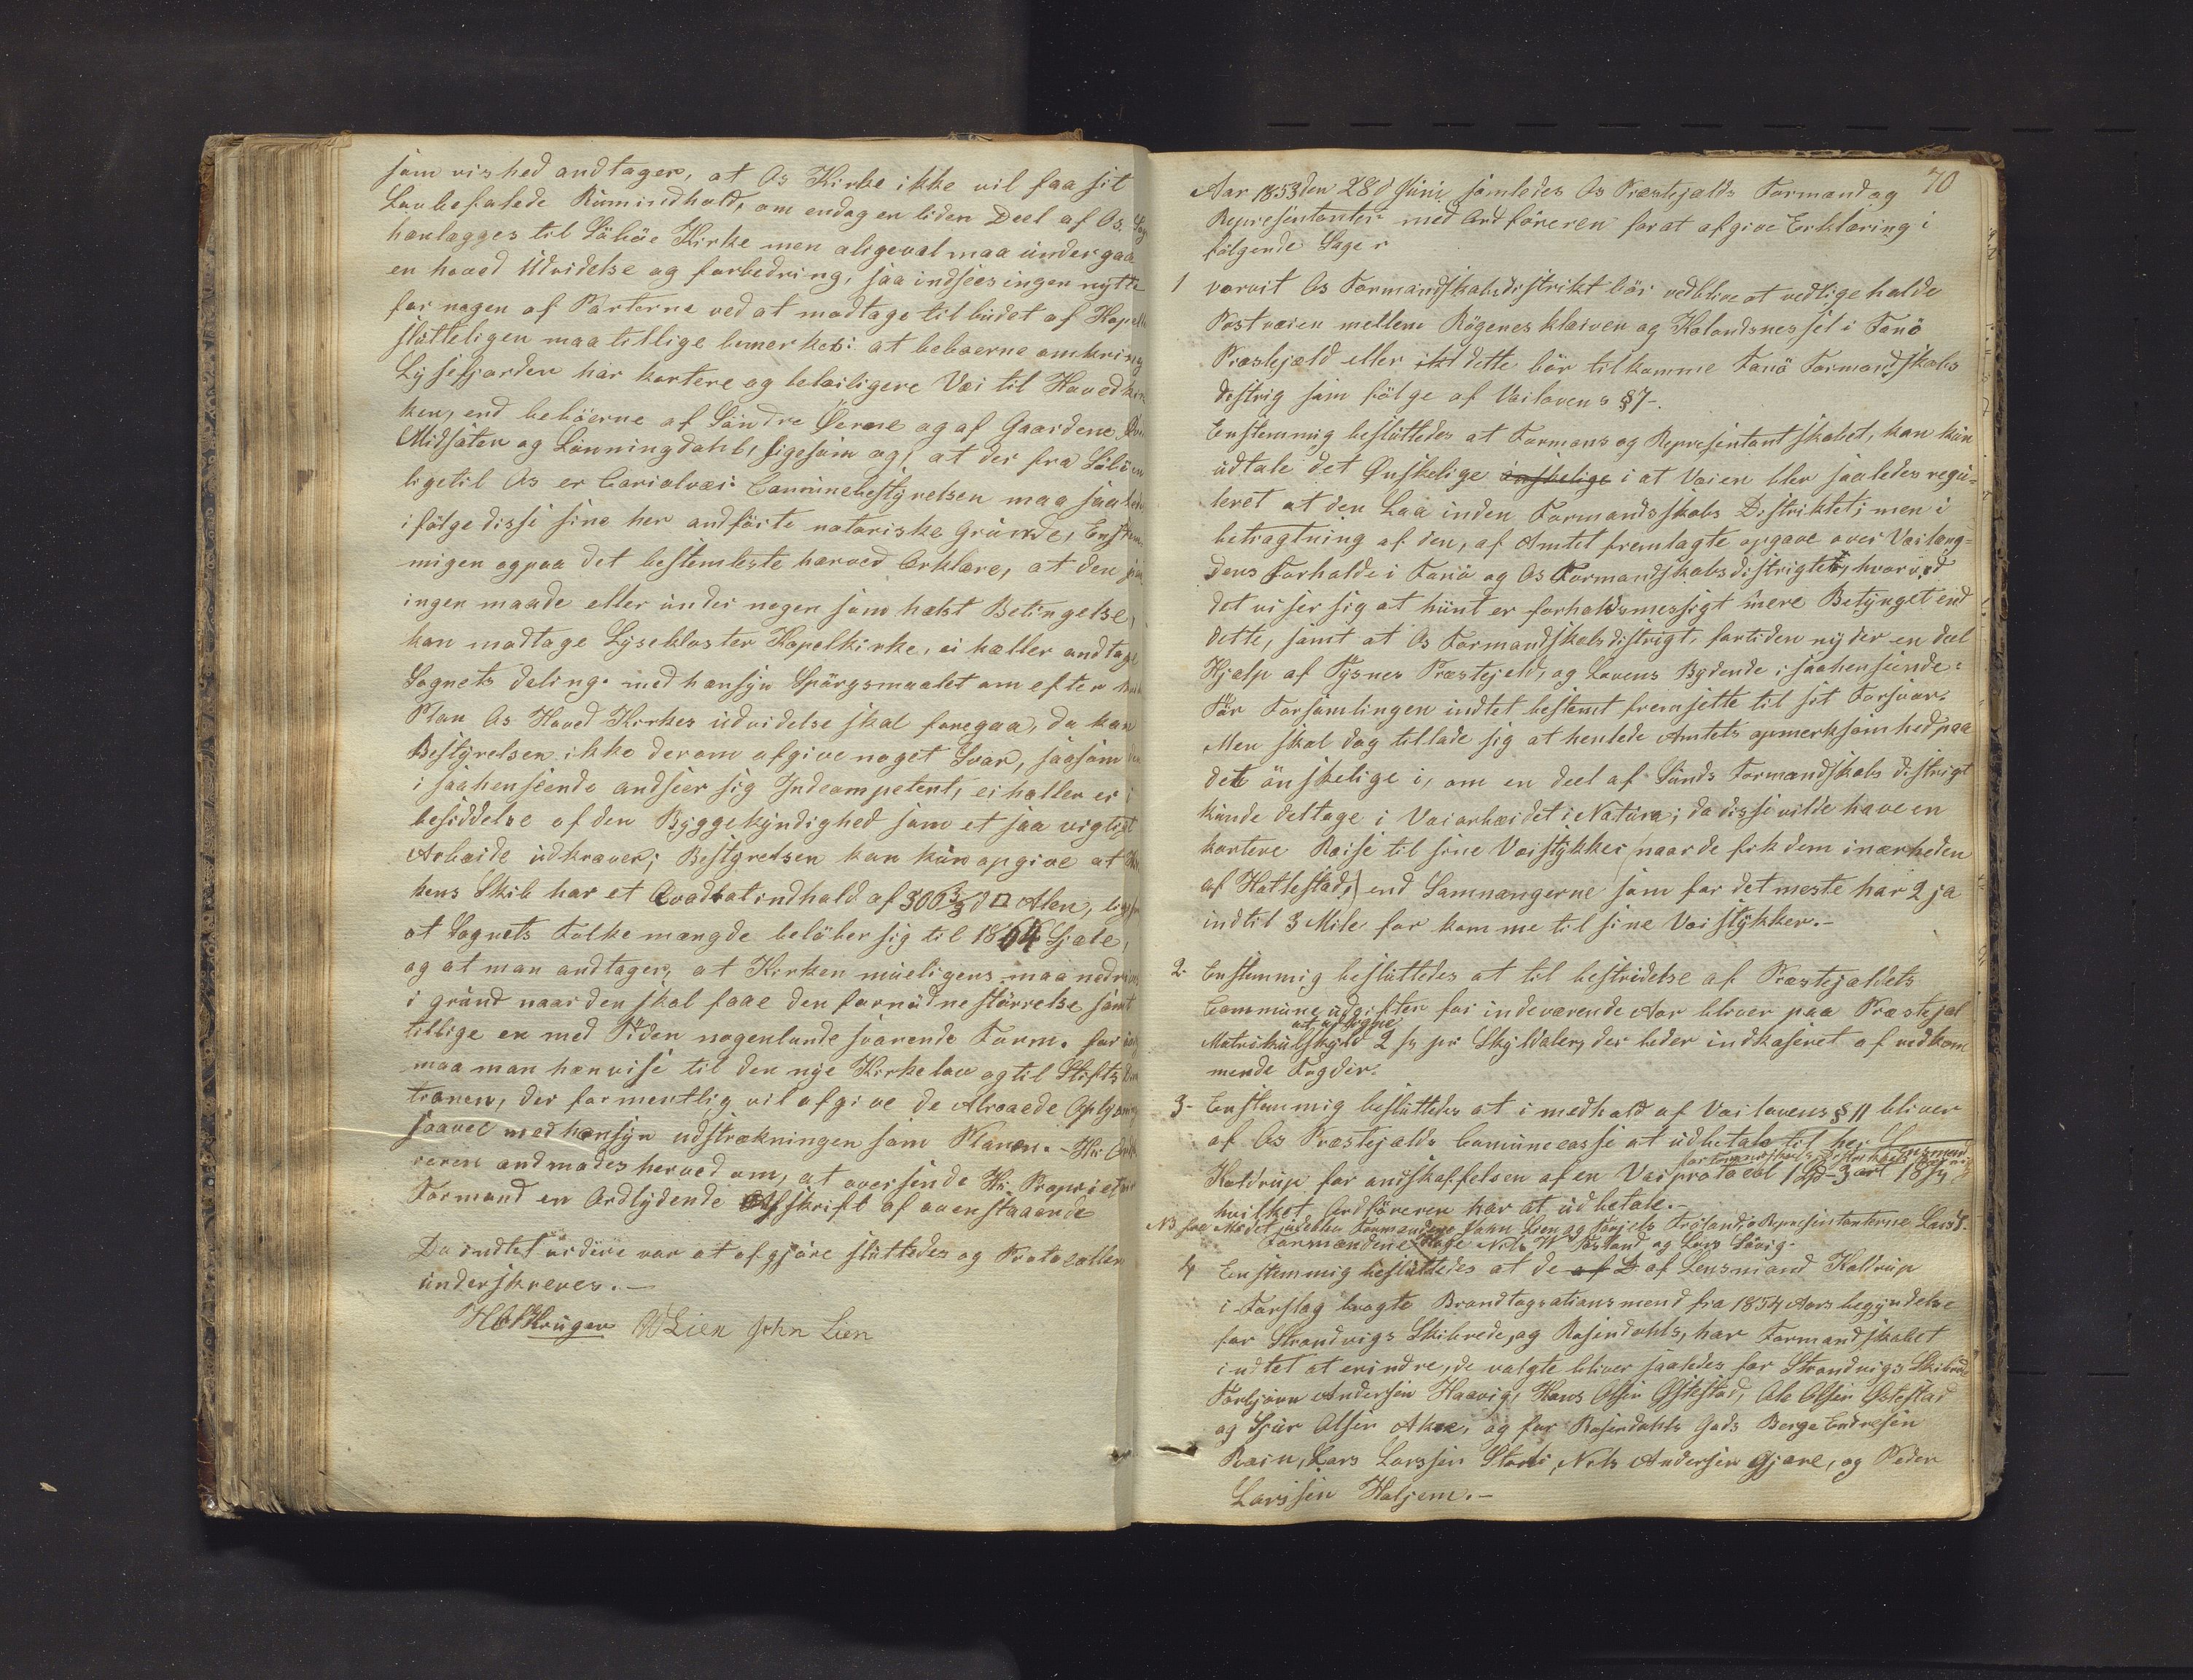 som vished andtager, at Os Kirke ikke vil faa sit
Lovbefalede Rumindhold, om endog en liden Deel af Os
henlægges til Söböe Kirke men aligevel maa undergaa
en hoved Udvidelse og forbedring, saa indsees ingen nytte
for nogen af Parterne ved at modtage tilbudet af Kapell
slutteligen maa tillige bemerkes: at beboerne omkring
Lysefjorden har kortere og beleiligere Vei til Hovedkir
ken, end beböerne af Söndre Öerne og af Gaardene
Midsæter og Lönningdahl, ligesom og, at der fra Söböe
ligetil Os er Cariolvæi. Communebestyrelsen maa saaledes
ifölge disse sine her andförte notoriske Grunde, Enstem
migen og paa det bestemteste herved Erklære, at den paa
ingen maade eller under nogen som helst Betingelse,
kan modtage Lysekloster Kapelkirke, ei heller andtage
Sognets deling. med hensyn Spörgsmaalet om efter
Plan Os Hoved Kirkes udvidelse skal foregaa, da kan
Bestyrelsen ikke derom afgive noget Svar, saasom
i saahenseende andseer sig Indcompetent, ei heller er i
besiddelse af den Byggekyndighed som et saa vigtigt
Arbeide udkræver; Bestyrelsen kan kun opgive at
kens Skib har et Qvadratindhold af 300 ⅔ d □ Alen,
at Sognets Folkemængde belöber sig til 1864 Sjæle,
og at man andtager, at Kirken mueligens maa nedrives
i grund naar den skal faae den fornödne störrelse samt
tillige en med Tiden nogenlunde svarende Form. for
maa man henvise til den nye Kirkelov og til Stifts
tionen, der formentlig vil afgive de Alroaede Oplysning
saavel med hensyn udstrækningen som Planen. - Hr
reren andmodes herved om, at oversende Hr. Proprietær
Formand en Ordlydende Afskrift af ovenstaaende
Da indtet videre var at afgjöre sluttedes og Protocollen
underskreves. -
Krüger OLien John Lien
70
Aar 1853 den 28d Juni samledes Os Præstejelds Formand og
Representanter med Ordföreren for at afgive Erklæring i
fölgende Sager
1 vorvit Os Formandskabsdistrikt bör vedblive at vedligeholde
Postveien mellem Rögenesklæiven og Halandsnesset i Fanö
Præstejæld eller dette bör tilkomme Fanö Formandskabs
distrig som fölge af Veilovens § 7 -.
Enstemmig besluttedes at Formans og Representantskabet, kan kun
udtale det Ønskelige önskelige i at Veien blev saaledes regu-
leret at den Laa inden Formandsskabs Distriktet; men i
betragtning af den, af Amtet fremlagte opgave over Veilæng-
dens Forholde i Fanö og Os Formandskabsdistrigter, hvorved
det viser sig at hünt er forholdsmessigt mere Betynget end
dette, samt at Os Formandskabsdistrigt, fortiden nyder en deel
Hjelp af Tysnes Præstejeld, og Lovens Bydende i saahenseende:
Tör Forsamlingen indtet bestemt fremsette til sit Forsvar.
Men skal dog tillade sig at henlede Amtets opmerksomhed paa
det önskelige i, om en deel af Sunds Formandskabs distrigt
kunde deltage i Veiarbeidet i Natura; da disse vilde have en
kortere Reise til sine Veistykker (naar de fik dem i nærheden
af Hattestad,) end Samnangerne som for det meste har 2 ja
indtil 3 Mile for komme til sine Veistykker. -
2. Enstemmig besluttedes at til bestridelse af Præstejeldets
Commune udgifter for indeværende Aar bliver paa Præstejel
at udligne
Matrikulskyld 2 s pr Skyldaler, der beder indkaseret af vedkom
mende Fogder.
3 - Enstemmig besluttedes at i medhold af Veilovens § 11 bliver
af Os Præstejelds Comunecasse at udbetale til her Lensmand
Koldrup for andskaffelsen af en Veiprotocol 1 Spd - 3 ort 18 s,
hvilket Ordföreren har at udbetale. -
NB fra Mödet udeblev Formændene John Lien og Representanterne Lars
Formændene Nils W. og Lars Söviig.
4 Enstemmig besluttedes at de af L af Lensmand Koldrup
i Forslag bragte Brandtaxationsmend fra 1854 Aars begyndelse
for Strandvigs Skibrede, og Rosendahls, har Formandskabet
indtet at erindre, de valgte bliver saaledes for Strandvigs Skibrede
Torbjörn Andersen Haavig, Hans Olsen Østestad, Ole Olsen Østestad
og Sjur Olsen Akre, og for Rosendahls Gods Berge Endresen
Röen, Lars Larssen Skorve, Nils Andersen Gjære, og Peder
Larssen Haljem. -